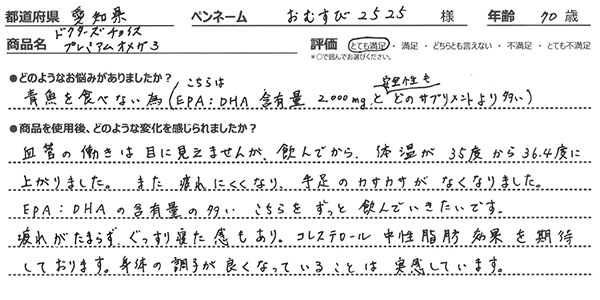 都道府県 愛知県 ペンネーム おむすび2525 様 年齢 70 歳
商品名 ドクターズチョイス プレミアムオメガ3
評価 とても満足 ・ 満足 ・ どちらとも言えない ・ 不満足 ・ とても不満足
*○で囲んでお選びください。
●どのようなお悩みがありましたか?
こちらは 安全性も
青魚を食べない為(EPA:DHA 含有量 2,000mgとどのサプリメントより多い)
●商品を使用後、どのような変化を感じられましたか?
血管の働きは目に見えませんが、飲んでから、体温が35度から36.4度に
上がりました。また 疲れにくくなり、手足のカサカサがなくなりました。
EPA:DHAの含有量の多い こちらを ずっと飲んでいきたいです。
疲れがたまらず、ぐっすり寝た感もあり。コレステロール 中性脂肪 効果を期待
しております。身体の調子が良くなっていることは 実感しています。